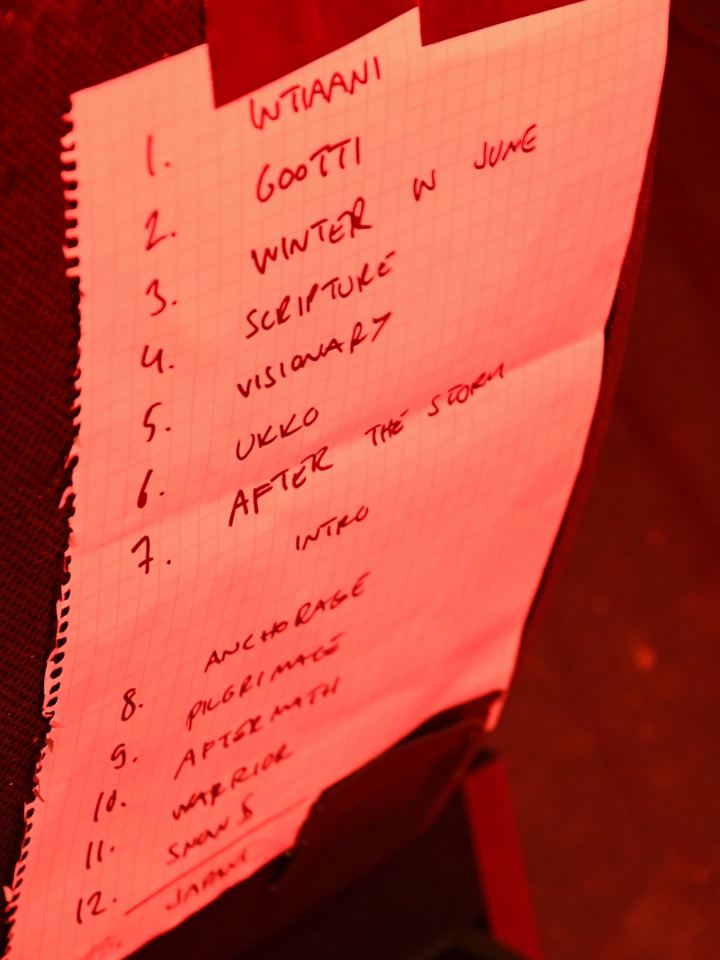 1. WTIAANI
2. GOOTTI
3. WINTER IN JUNE
4. SCRIPTURE
5. VISIONARY
6. UKKO
7. AFTER THE STORM
INTRO
8. ANCHORAGE
9. PILGRIMAGE
10. AFTERMATH
11. WARRIOR
12. SNOW $
JAPANI